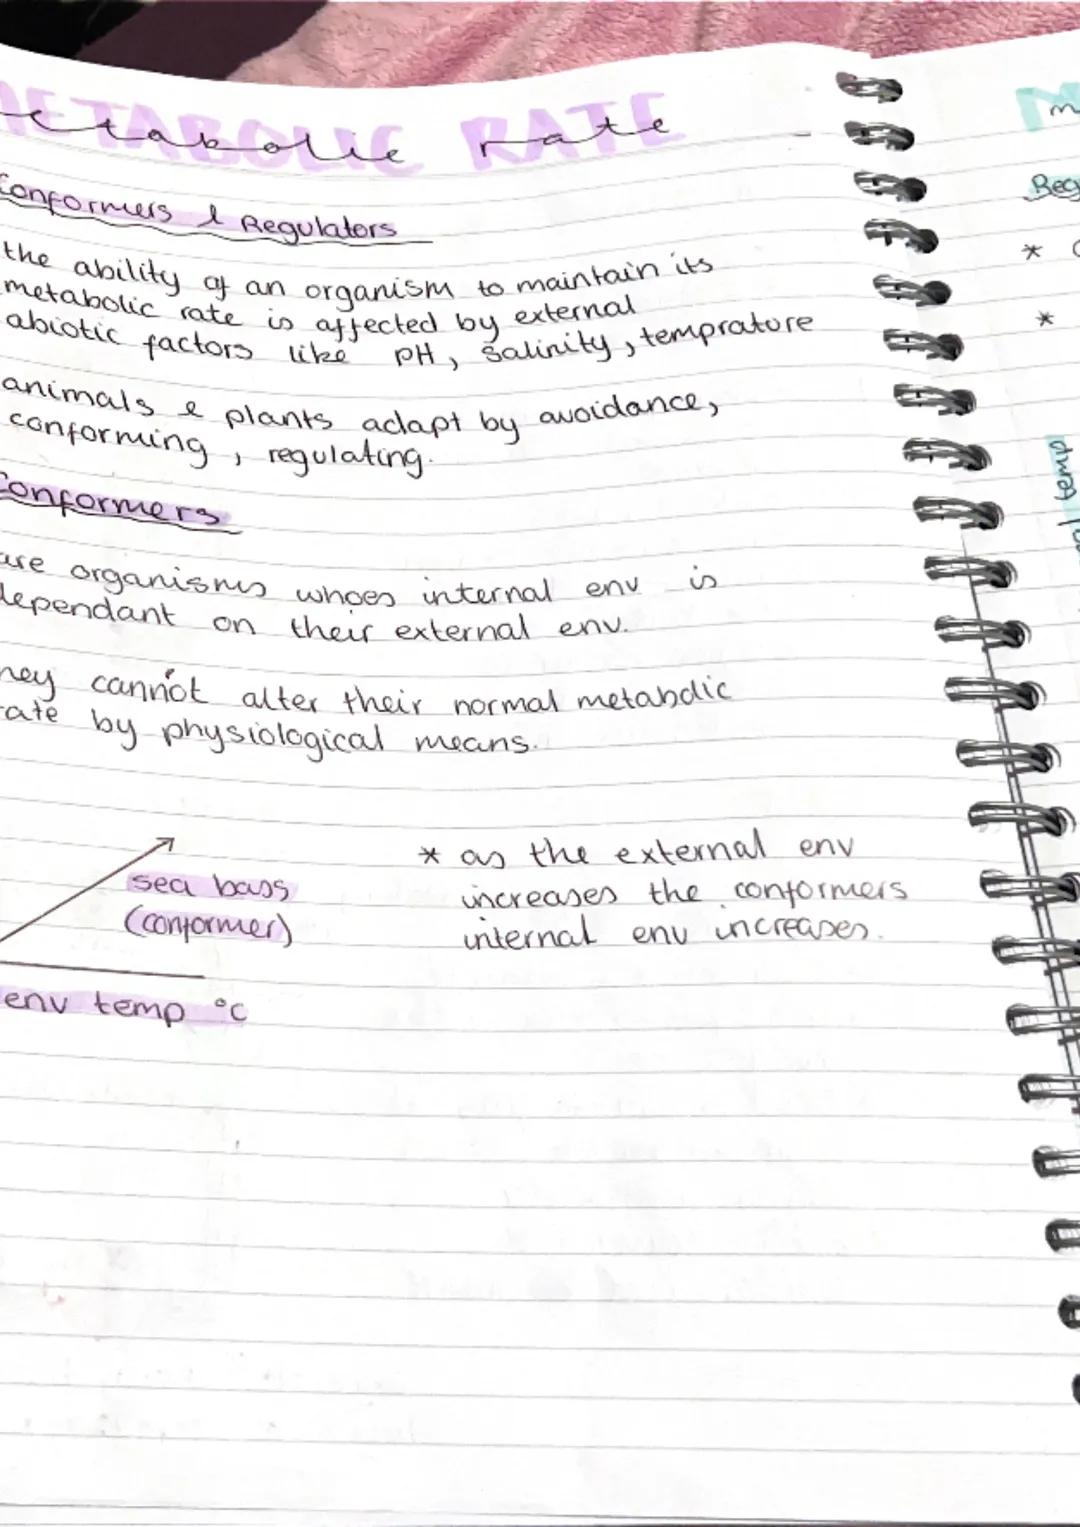 METABOLIC RATE
etabolic rate
Conformers & Regulators
the ability of an organism to maintain its
metabolic rate is affected by external
abiotic factors like PH, Salinity, temprature
animals & plants adapt by avoidance,
conforming, regulating.
Conformers
are organisms whoes internal env is
dependant on their external env.
hey cannot alter their normal metabolic
rate by physiological means.
sea bass
(conformer)
env temp °C
* as the external env
increases the conformers
internal env increases.
M
m
Reg
*
*
temp